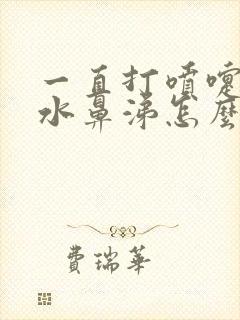 一直打喷嚏
水鼻涕怎麼
費瑞華